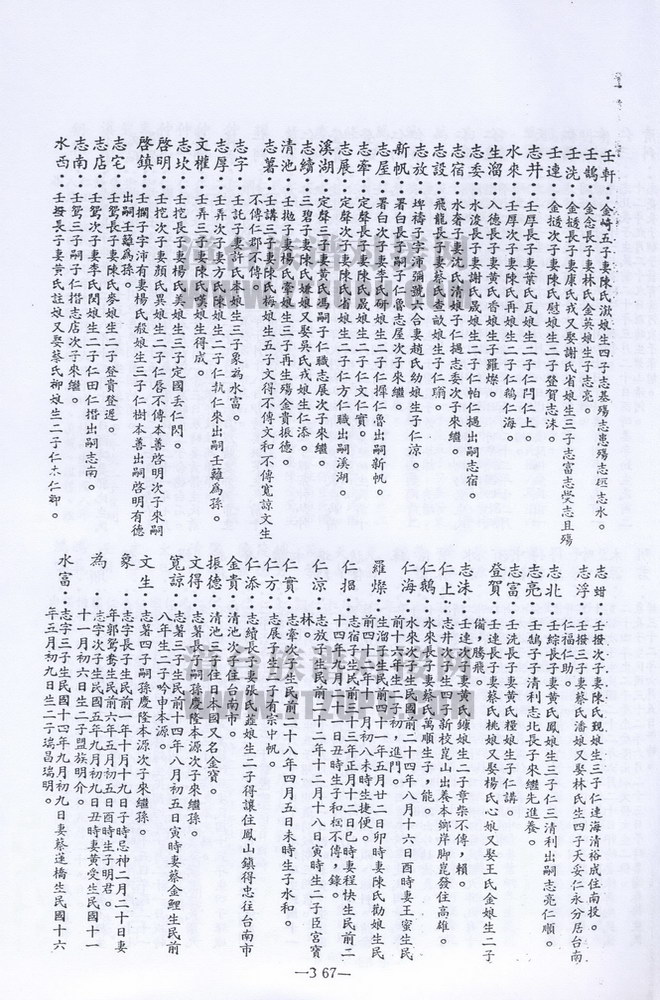 壬軒：金崎五子妻陳氏漖娘生四子志基殤志志殤志志水。
壬鵲：金忿長子妻林氏金英娘生子志亮。
壬洗：金鎰長子妻康氏戎又娶謝氏省娘生三子志富志受志且殤
壬連：金鎰次子妻陳氏慰娘生二子登賀志沫。
志井：壬厚長子妻葉氏瓦娘生二子仁閂仁上。
水來：壬厚次子妻陳氏再娘生二子仁鵝仁海。
生溜：入德長子妻黃氏香娘生子羅燦。
志委：水浚長子妻謝氏晟娘生二子仁怕仁摁出嗣志宿。
志宿：水奢子妻沈氏清娘子仁摁志委次子來繼。
志設：飛龍長子妻蔡氏查畝娘生子仁瑞。
志放：埤禱子字沛彌號六合妻趙氏幼娘生子仁涼。
新帆：署白長子嗣子仁魯志屋次子來繼。
志屋：署白次子妻李氏研娘生二子仁擇仁魯出嗣新帆。
志牽：定聲長子妻陳氏晟娘生二子仁文仁實。
志展：定聲次子妻陳氏省娘生二子仁方仁職出嗣溪湖。
溪湖：定聲三子妻黃氏馮嗣子仁職志展次子來繼。
志續：三碧子妻陳氏嫌娘又娶吳氏戎娘生仁添。
清池：壬拋子妻楊氏臺娘生三子再生殤金貴振德。
志箸：壬講三子妻陳氏梅娘生五子文得不傳文和不傳寬諒文生
不傳仁郡不傳。
志字：壬託子妻許氏來娘生三子象為水富。
志厚：壬弄次子妻方氏陳娘生二子仁抗仁來出嗣壬離為孫。
文權：壬弄三子妻陳氏嘆娘生得成。
志坎：壬挖長子妻楊氏美娘生三子定國丟仁閃。
啓明：壬挖次子妻顏氏異娘生二子仁唇不傳本善啓明次子來嗣
啓鎮：壬攔子字沛有妻楊氏殺娘生三子仁樹本善出嗣啓明有德
出嗣壬離為孫。
志宅：壬鴛長子妻陳氏麥娘生二子登貴登遅。
志店：壬鴛次子妻李氏閃娘生二子仁田仁措出嗣志南。
志南：壬鴛三子嗣子仁措志店次子來繼。
水西：壬撥長子妻黃氏註娘又娶蔡氏柳娘生二子仁仁卿。
志蚶：壬撥次子妻陳氏覲娘生三子仁連海清裕成住南投。
志浮：壬撥三子妻蔡氏潘娘又娶林氏生四子天安仁永分居台南
仁福仁助。
志北：壬綜長子妻黃氏鳳娘生三子仁三清利出嗣志亮仁順。
志亮：壬鵠子子清利志北長子來繼先進養。
志富：壬洗長子妻黃氏種娘生子仁講。
登賀：壬連長子妻蔡氏桃娘又娶楊氏心娘又娶王氏金娘生二子
備，騰飛。
志沫：壬連次子妻黃氏線娘生二子章柒不傳，賴。
仁上：志井四子生新枝崑山出養本鄉岸脚崑發住高雄。
仁鵝：水來長子妻蔡氏萬順生子，能。
仁海：水來次子生民國前二十四年八月十六日酉時妻王蜜生民
前十八年生二子初，進門。
羅燦：生溜子生民前四十一年五月廿二日卯時妻陳氏勸娘生民
前四十年十一月初八未時生捷便。
仁摁：志宿子生民前四十三年正月十二日巳時妻程快生民前二
十四年九月二十日丑時生子和樫不傳，錄。
仁涼：志放子生民前二十二年十二月十八日寅時生二子臣宮寶
林。
仁實：志豪次子生民前二十八年四月五日未時生子水和。
仁方：志展子生二子有宗中帆。
仁添：志續長子妻張氏盞娘生二子得讓住鳳山鎮得忠往台南市
金貴：清池次子住台南市。
振德：清池三子住日本國又名金寶。
文得：志箸長子嗣孫慶隆本源次子來繼孫。
寬諒：志箸三子生民前十四年八月初五日寅時妻蔡金鯉生民前
八年生二子吟申本源。
文生：志箸四子嗣孫慶隆本源次子來繼孫。
象：志字長子生民前一年十月十九日子時忌神二月二十日妻
年郭鴛喬生民前六年五月初五日酉時生子明君。
為：志字次子生民國五年九月初九日丑時妻黃受生民國十一
十一月初六日生二子盟族明介。
水富：志字三子生民國十四年九月初九日妻蔡蓮橋生民國十六
年五月初九日生二子瑞昌瑞明。
—3 67—